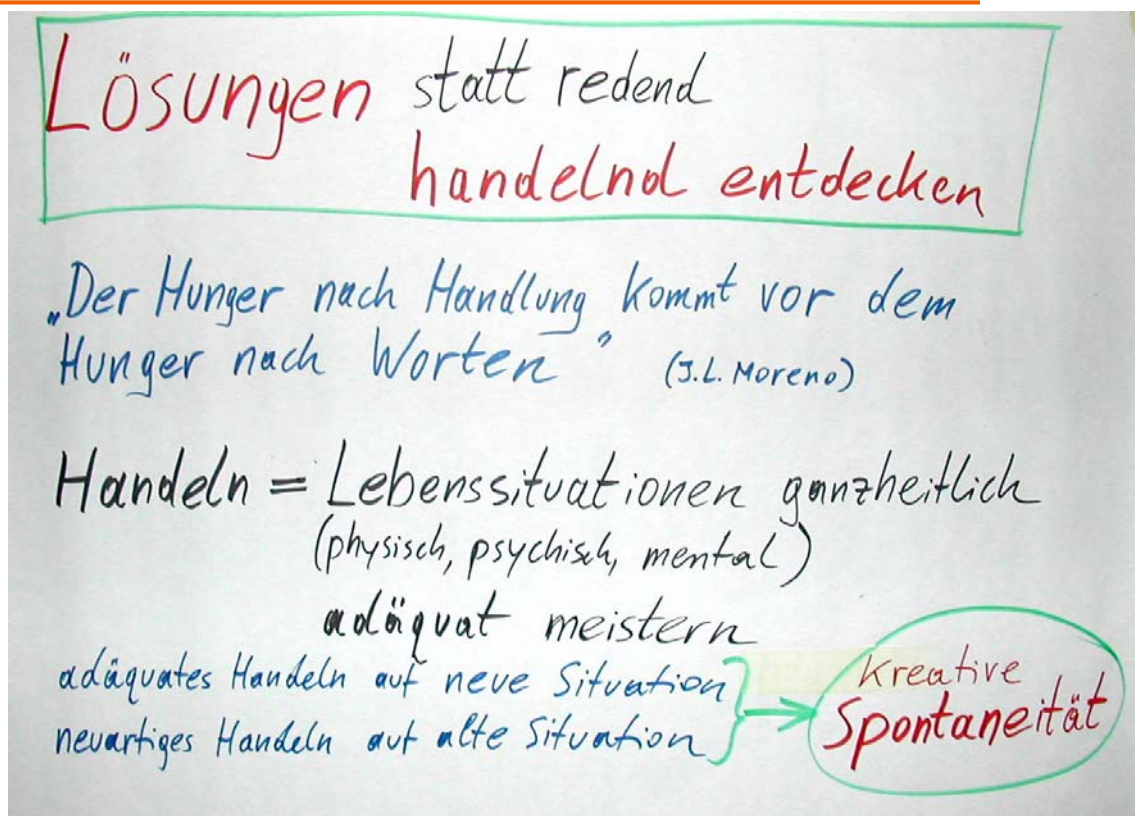 Lösungen statt redend
handelnd entdecken
„Der Hunger nach Handlung kommt vor dem
Hunger nach Worten" (J.L. Moreno)
Handeln = Lebenssituationen ganzheitlich
(physisch, psychisch, mental)
adäquat meistern
adäquates Handeln auf neue Situation
neuartiges Handeln auf alte Situation
Kreative
Spontaneität